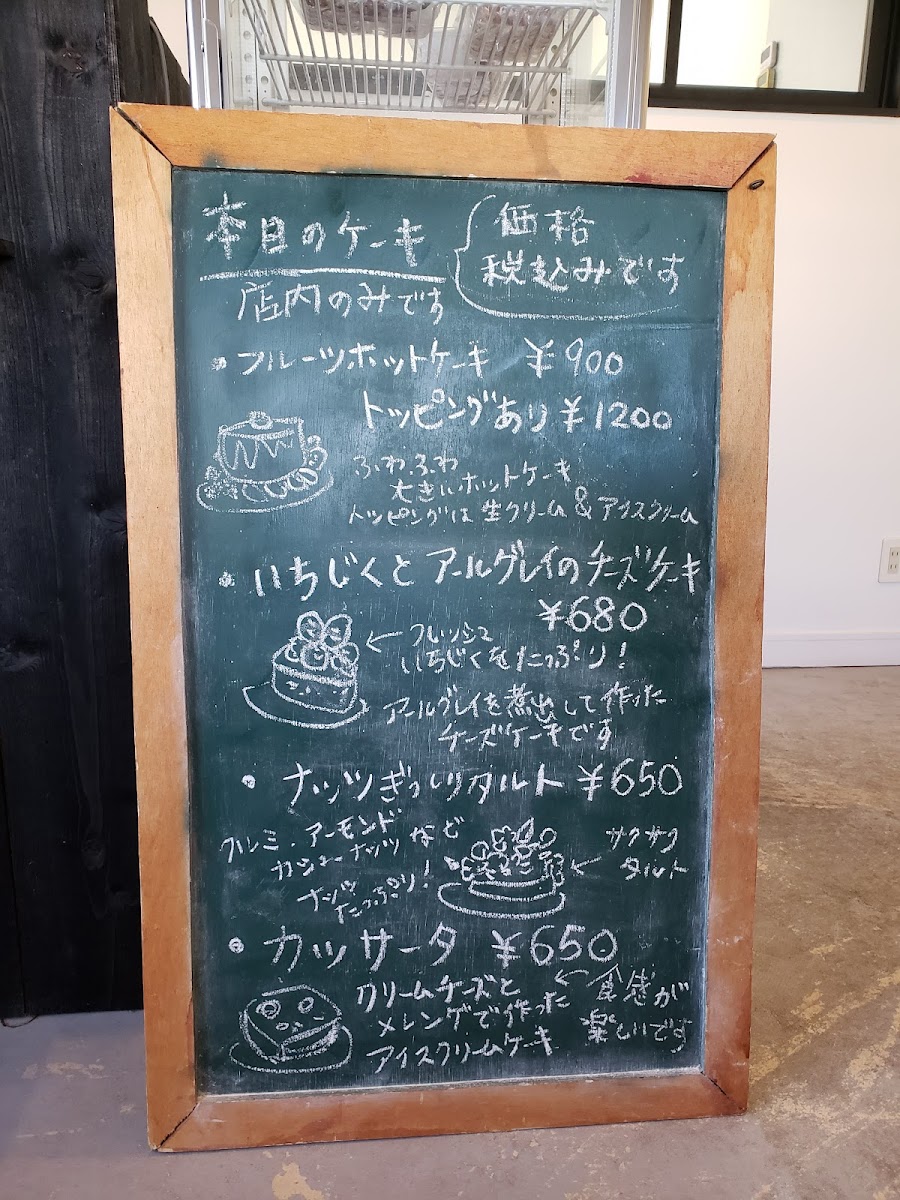 本日のケーキ
価格
税込みです
店内のみです
・フルーツホットケーキ ¥900
トッピングあり ¥1200
ふわふわ
大きいホットケーキ
トッピングは生クリーム&アイスクリーム
・いちじくとアールグレイのチーズケーキ
¥680
←フレッシュ
いちじくをたっぷり!
アールグレイを煮出して作った
チーズケーキです
・ナッツぎっしりタルト ¥650
クルミ・アーモンド
カシューナッツなど
ナッツ
たっぷり!
←サクサク
タルト
・カッサータ ¥650
クリームチーズと
メレンゲで作った
アイスクリームケーキ
←食感が
楽しいです